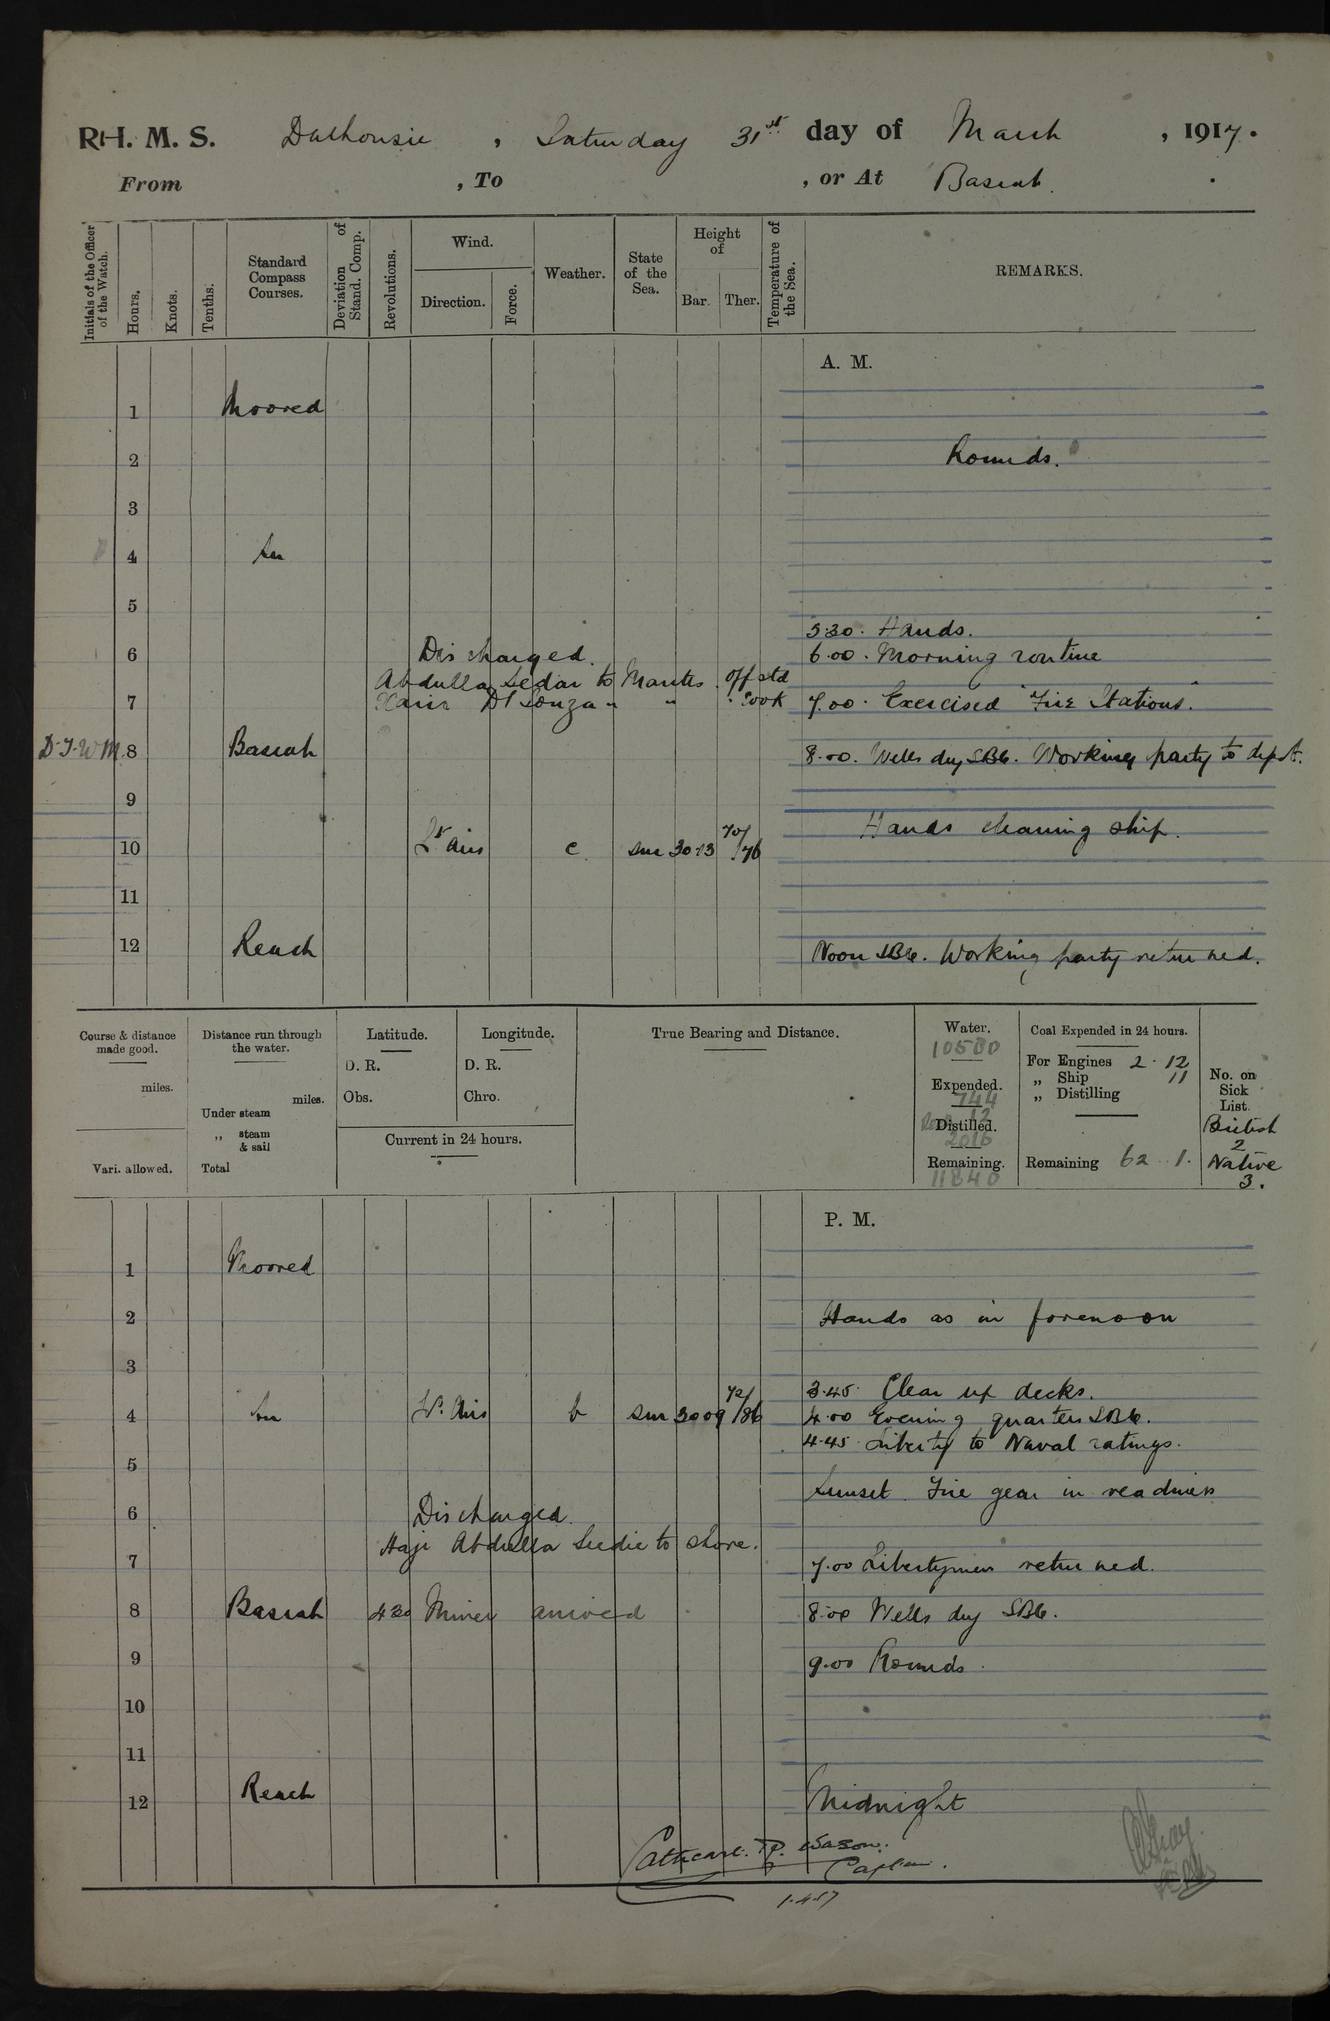 R H. M. S. Dalhousie, Saturday 31st day of March, 1917.
From , To , or At Basrah.
Initials of the Officer of the Watch.
Hours.
Knots.
Tenths.
Standard Compass Courses.
Deviation of Stand. Comp.
Revolutions.
Wind.
Direction.
Force.
Weather.
State of the Sea.
Height of
Bar.
Ther.
Temperature of the Sea.
REMARKS.
A. M.
1 Moored
2 Rounds.
3
4 in
5
5.30. Hands.
6 Discharged. 6.00. Morning routine
Abdulla Sedar to Mantis. Off std
7 Xavier D'Souza " " " Cook 7.00. Exercised "Fire Stations".
8 Basrah 8.00. Wells dry SB6. Working party to depot.
9
Hands cleaning ship.
10 Lt Airs c sm 30.13 70/76
11
12 Reach Noon SB6. Working party returned.
Course & distance made good.
miles.
Vari. allowed.
Distance run through the water.
miles.
Under steam
„ steam & sail
Total
Latitude.
D. R.
Obs.
Longitude.
D. R.
Chro.
Current in 24 hours.
True Bearing and Distance.
Water.
10580
Expended.
744
12
Distilled.
2016
Remaining.
11840
Coal Expended in 24 hours.
For Engines 2 . 12
„ Ship 11
„ Distilling
Remaining 62 . 1.
No. on Sick List.
British
2
Native
3.
P. M.
1 Moored
2 Hands as in forenoon
3
3.45. Clear up decks.
4 in Lt. Airs b sm 30 09 72/86 4.00 Evening quarters SB6.
4.45. Liberty to Naval ratings.
5
Sunset. Fire gear in readiness
6 Discharged.
Haji Abdulla Seedie to shore.
7 7.00 Libertymen returned.
8 Basrah 4.30 Miner arrived 8.00 Wells dry SB6.
9 9.00 Rounds.
10
11
12 Reach Midnight
Cathcart. R. Wason.
Captain.
1.4.17